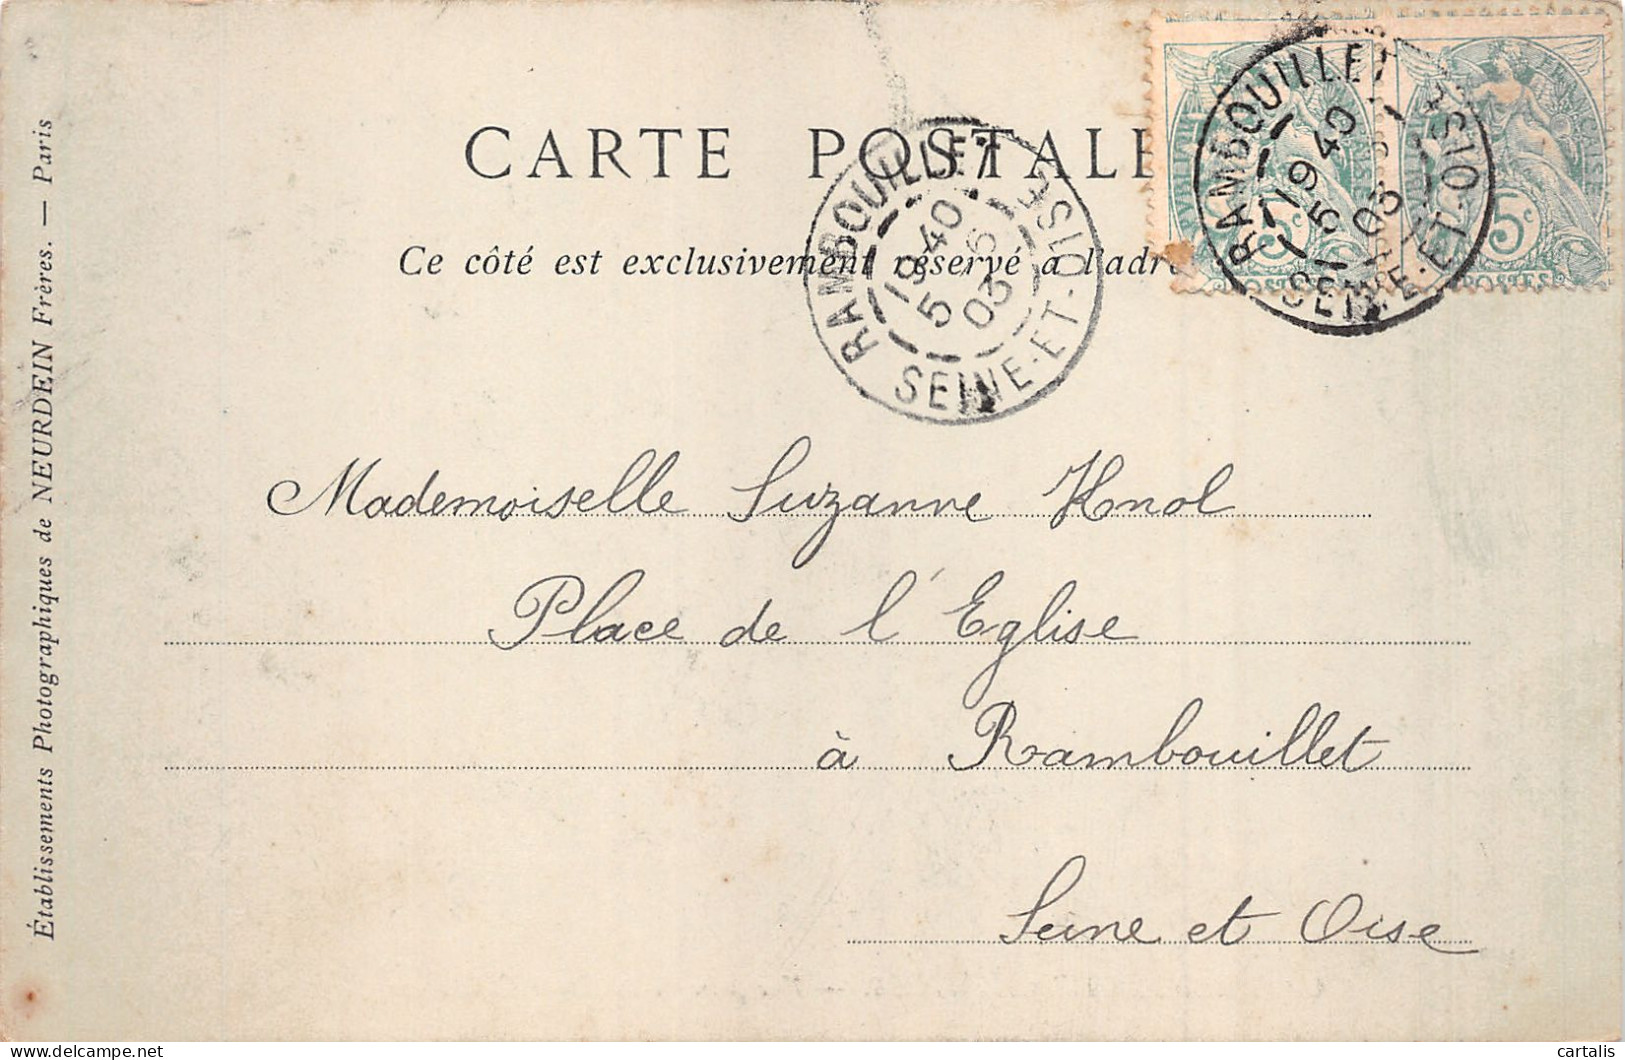 CARTE POSTALE
Ce côté est exclusivement réservé à l'adre
RAMBOUILLET
19 40
5 -6
03
SEINE-ET-OISE
RAMBOUILLET
19 40
5
03
SEINE-ET-OISE
5c
POSTES
5c
POSTES
Mademoiselle Suzanne Knol
Place de l'Eglise
à Rambouillet
Seine et Oise
Établissements Photographiques de NEURDEIN Frères. — Paris
delcampe.net
cartalis